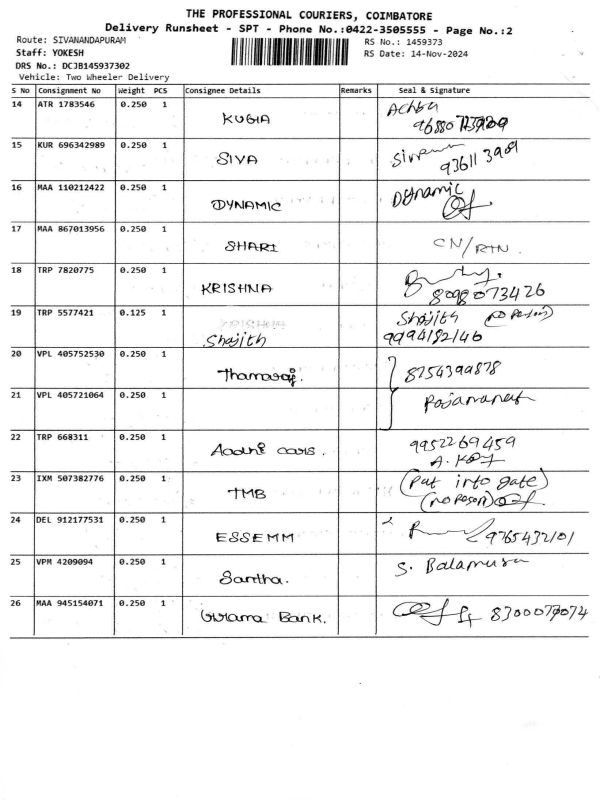 THE PROFESSIONAL COURIERS, COIMBATORE
Delivery Runsheet - SPT - Phone No.:0422-3505555 - Page No.:2
Route: SIVANANDAPURAM
RS No.: 1459373
Staff: YOKESH
RS Date: 14-Nov-2024
DRS No.: DCJB145937302
Vehicle: Two Wheeler Delivery
S No Consignment No Weight PCS Consignee Details Remarks Seal & Signature
14 ATR 1783546 0.250 1
KUGIA
15 KUR 696342989 0.250 1
SIVA
93611 3989
16 MAA 110212422 0.250 1
DYNAMIC Dynamic
17 MAA 867013956 0.250 1
SHARI CN/RTN.
18 TRP 7820775 0.250 1
KRISHNA 8098073426
19 TRP 5577421 0.125 1
KRISHNA Shajith (no Person)
Shajith 9994182146
20 VPL 405752530 0.250 1
Thamaraj. 8754399878
21 VPL 405721064 0.250 1
22 TRP 668311 0.250 1
Aadhi cars. 9952269459
23 IXM 507382776 0.250 1
TMB (Put into gate)
24 DEL 912177531 0.250 1
ESSEMM 9765432101
25 VPM 4209094 0.250 1
Santha. S. Balamuru
26 MAA 945154071 0.250 1
Bank. 8300077074